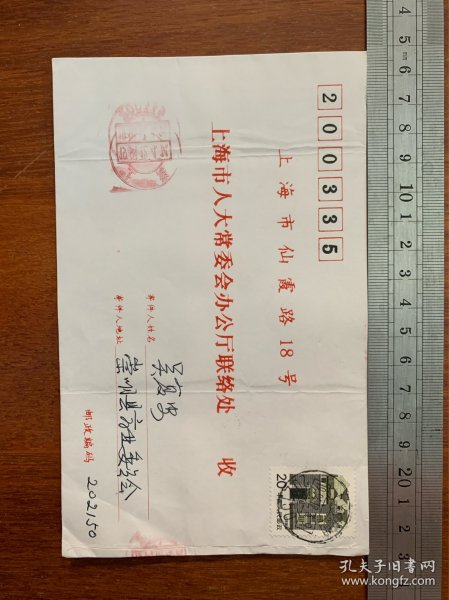 200335
上海市仙霞路18号
上海市人大常委会办公厅联络处 收
寄件人姓名
寄件人地址 崇明县农业委员会
邮政编码 202150
20
4 5 6 7 8 9 10 1 2 3 4 5 6 7 8 9 20 1 2 3
孔夫子旧书网
www.kongfz.com